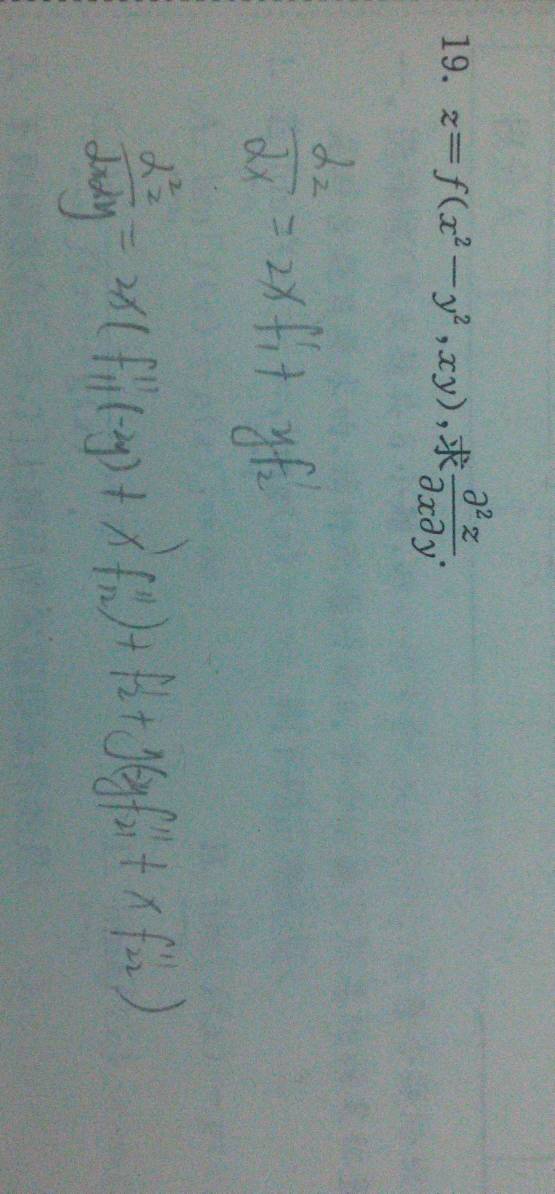 19. z=f(x²-y²,xy),求∂²z/∂x∂y.
dz/dx = 2x f₁' + y f₂'
d²z/dxdy = 2x(f₁₁''(-2y) + x f₁₂'') + f₂' + y(-2y f₂₁'' + x f₂₂'')